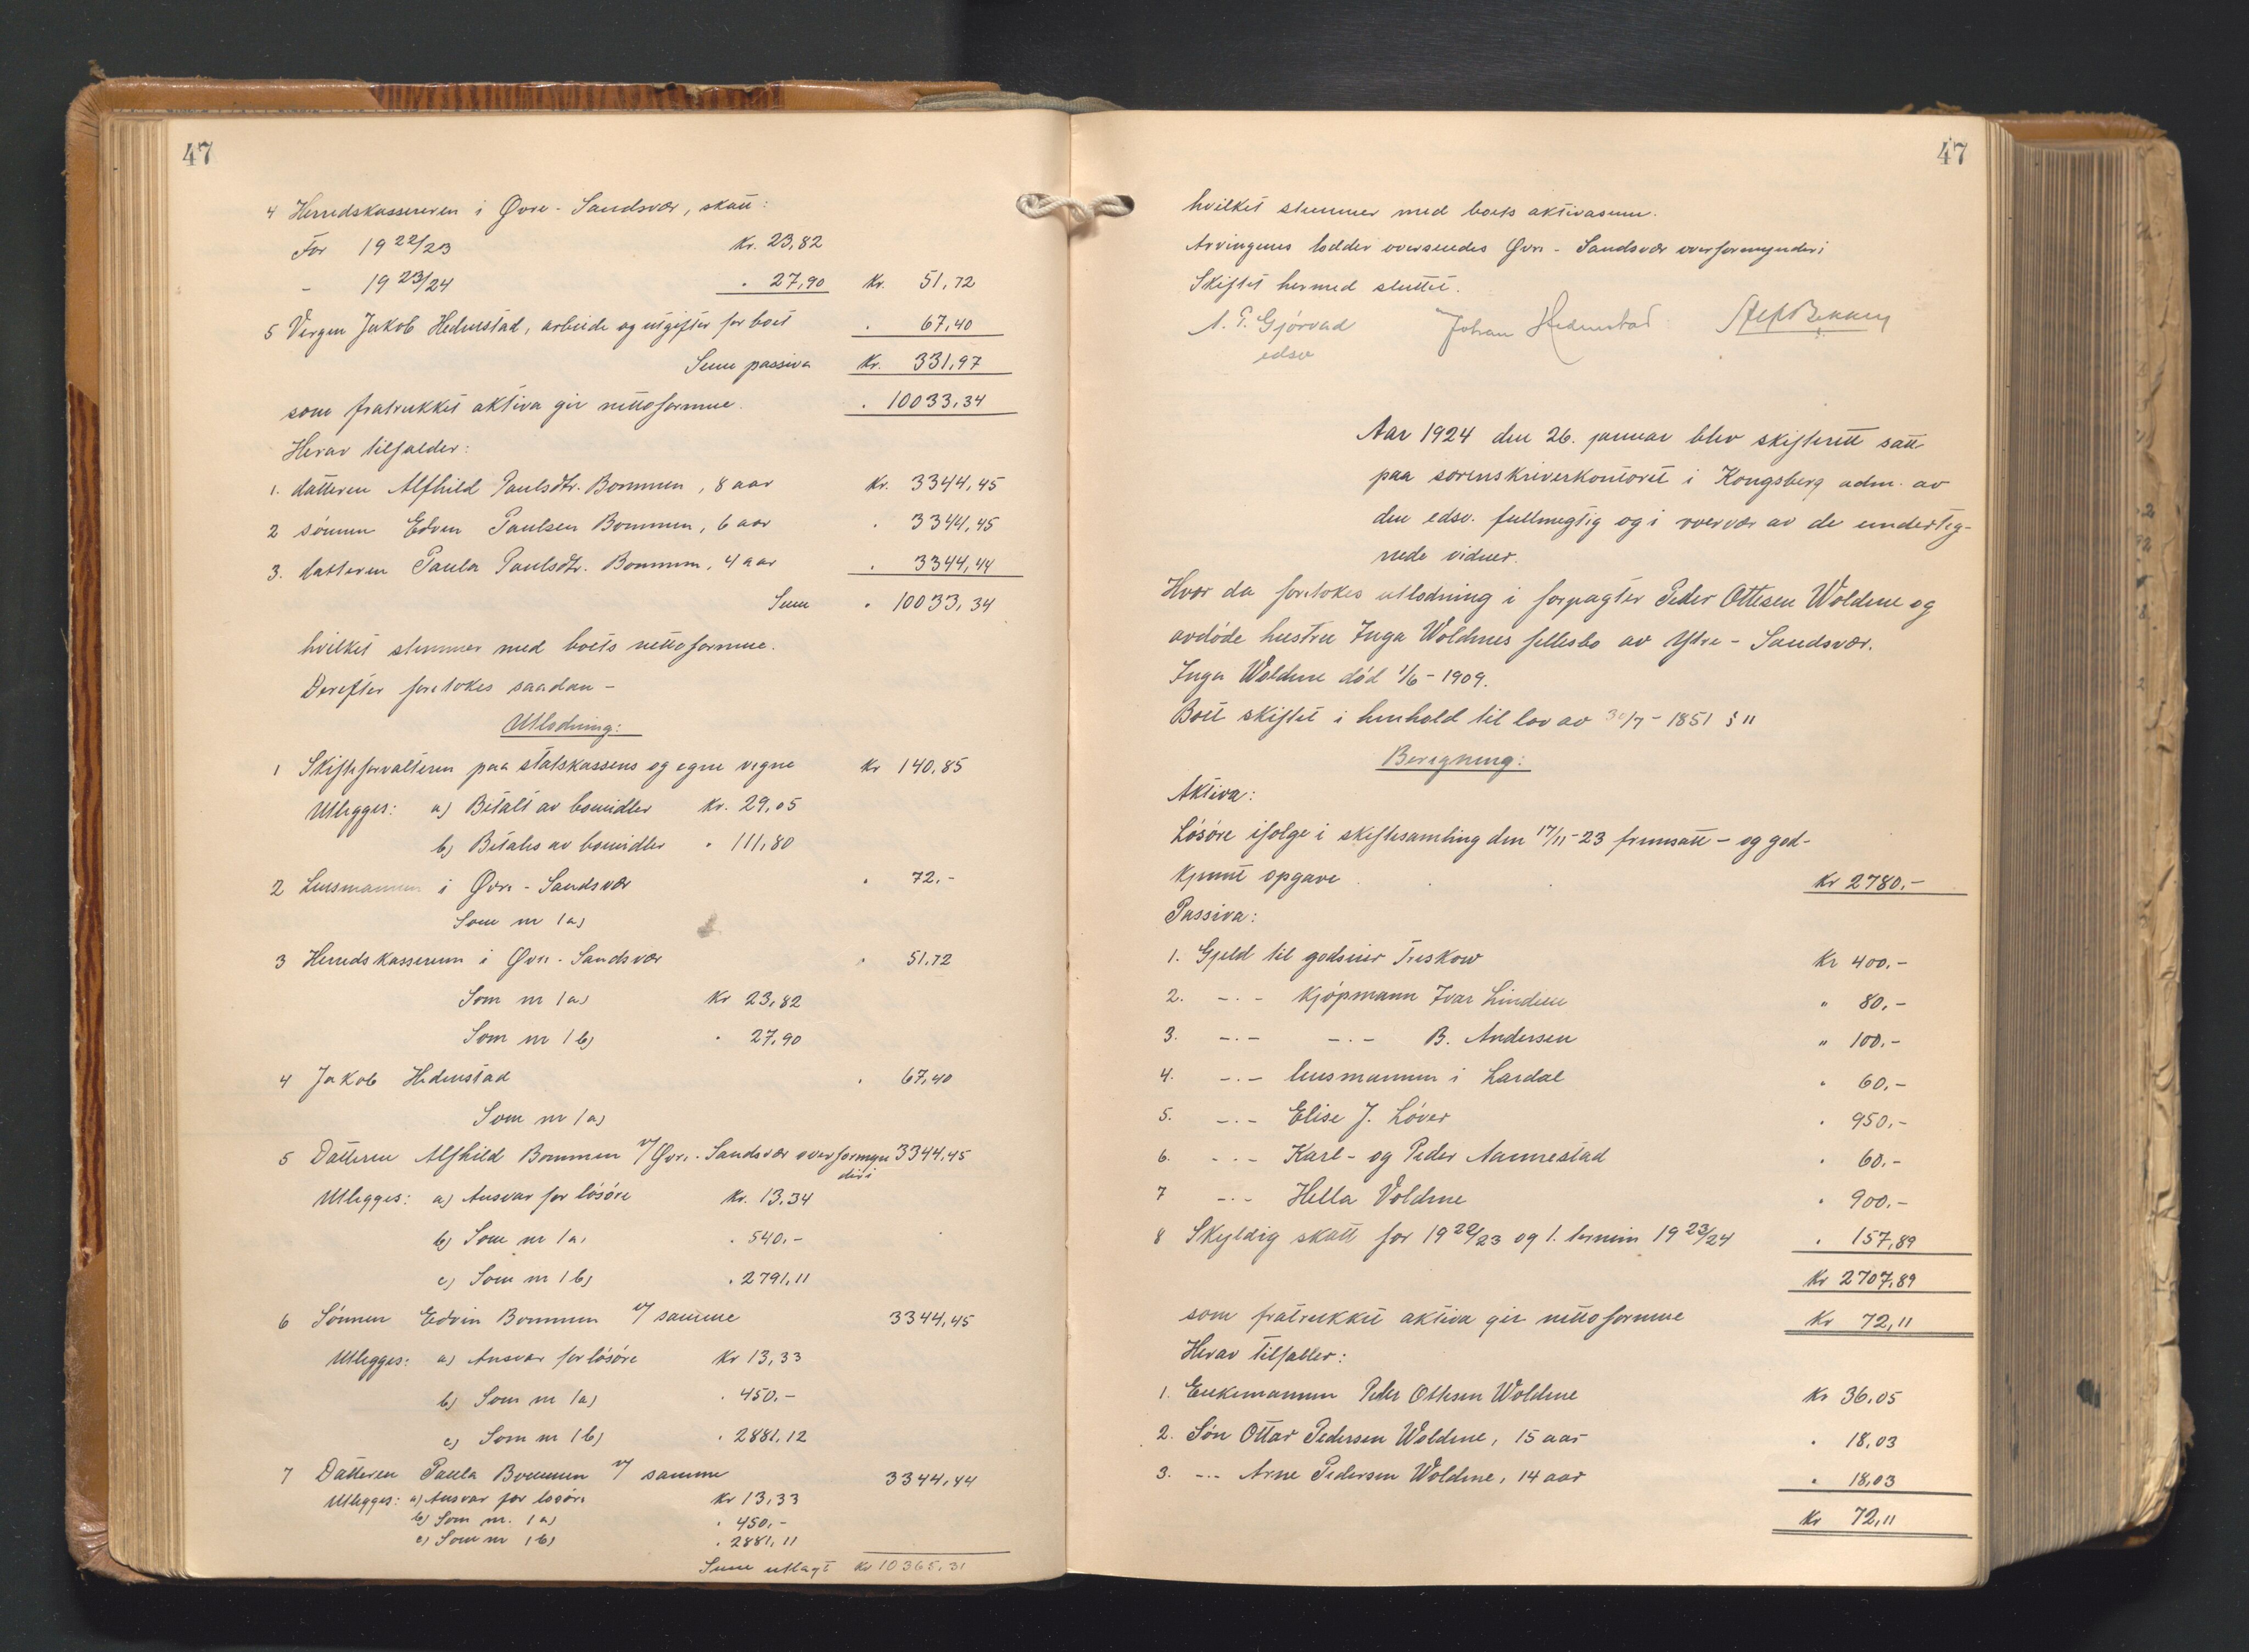 47
4 Herredskassereren i Øvre-Sandsvær, skatt:
For 19 22/23 Kr. 23,82
- 19 23/24 " 27,90 Kr. 51,72
5 Vergen Jakob Hedenstad, arbeide og utgifter for boet " 67,40
Sum passiva Kr. 331,97
som fratrukket aktiva gir nettoformue. " 10033,34
Herav tilfalder:
1. datteren Alfhild Paulsdtr. Bommen, 8 aar Kr. 3344,45
2 sønnen Edvin Paulsen Bommen, 6 aar " 3344,45
3. datteren Paula Paulsdtr. Bommen, 4 aar " 3344,44
Sum " 10033,34
hvilket stemmer med boets nettoformue.
Derefter foretokes saadan -
Utlodning:
1 Skifteforvalteren paa statskassens og egne vegne Kr 140,85
Utlegges: a) Betalt av bomidler Kr. 29,05
b) Betales av bomidler " 111,80
2 Lensmannen i Øvre-Sandsvær " 72.-
Som nr 1a)
3 Herredskassereren i Øvre-Sandsvær " 51,72
Som nr 1a) Kr 23,82
Som nr 1b) " 27,90
4 Jakob Hedenstad " 67,40
Som nr 1a)
5 Datteren Alfhild Bommen v/ Øvre-Sandsvær overformynderi 3344,45
Utlegges: a) Ansvar for løsøre Kr. 13,34
b) Som nr 1a) " 540.-
c) Som nr 1b) " 2791,11
6 Sønnen Edvin Bommen v/ samme 3344,45
Utlegges: a) Ansvar for løsøre Kr 13,33
b) Som nr 1a) " 450.-
c) Som nr 1b) " 2881,12
7 Datteren Paula Bommen v/ samme 3344,44
Utlegges: a) Ansvar for løsøre Kr 13,33
b) Som nr. 1a) " 450.-
c) Som nr 1b) " 2881,11
Sum utlagt Kr 10365,31
47
hvilket stemmer med boets aktivasum.
Arvingenes lodder oversendes Øvre-Sandsvær overformynderi
Skiftet hermed sluttet.
A. T. Gjørvad Johan Hedenstad
edsv
Aar 1924 den 26. januar blev skifterett satt
paa sorenskriverkontoret i Kongsberg adm. av
den edsv. fullmegtig og i overvær av de underteg-
nede vidner.
Hvor da foretokes utlodning i forpagter Peder Ottesen Woldene og
avdøde hustru Inga Woldenes fellesbo av Ytre-Sandsvær.
Inga Woldene død 1/6-1909.
Boet skiftet i henhold til lov av 30/7-1851 § 11
Beregning:
Aktiva:
Løsøre ifølge i skiftesamling den 17/11-23 fremsatt- og god-
kjennt opgave Kr 2780.-
Passiva:
1. Gjeld til godseier Treskow Kr 400.-
2. -.- Kjøpmann Ivar Lindem " 80.-
3. -.- -.- B. Andersen " 100.-
4. -.- lensmannen i Lardal " 60.-
5. -.- Elise J. Løver " 950.-
6. -.- Karl- og Peder Aannestad " 60.-
7 -.- Hella Voldene " 900.-
8 Skyldig skatt for 19 22/23 og 1. termin 19 23/24 " 157,89
Kr 2707,89
som fratrukket aktiva gir nettoformue Kr 72,11
Herav tilfaller:
1. Enkemannen Peder Ottesen Woldene Kr 36,05
2. Søn Ottar Pedersen Woldene, 15 aar " 18,03
3. -.- Arne Pedersen Woldene, 14 aar " 18,03
Kr 72,11